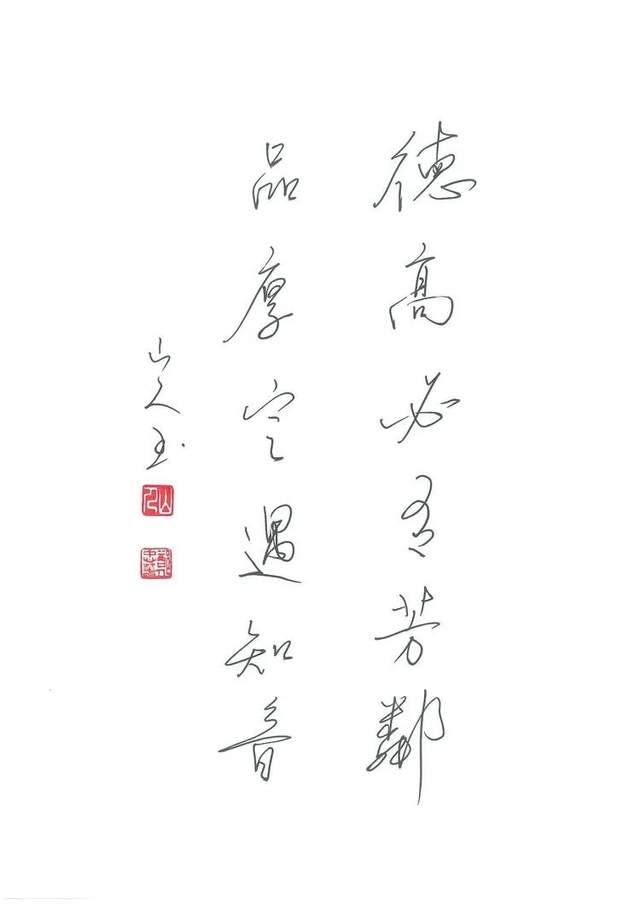 德高必有芳鄰
品厚定遇知音
山人玉